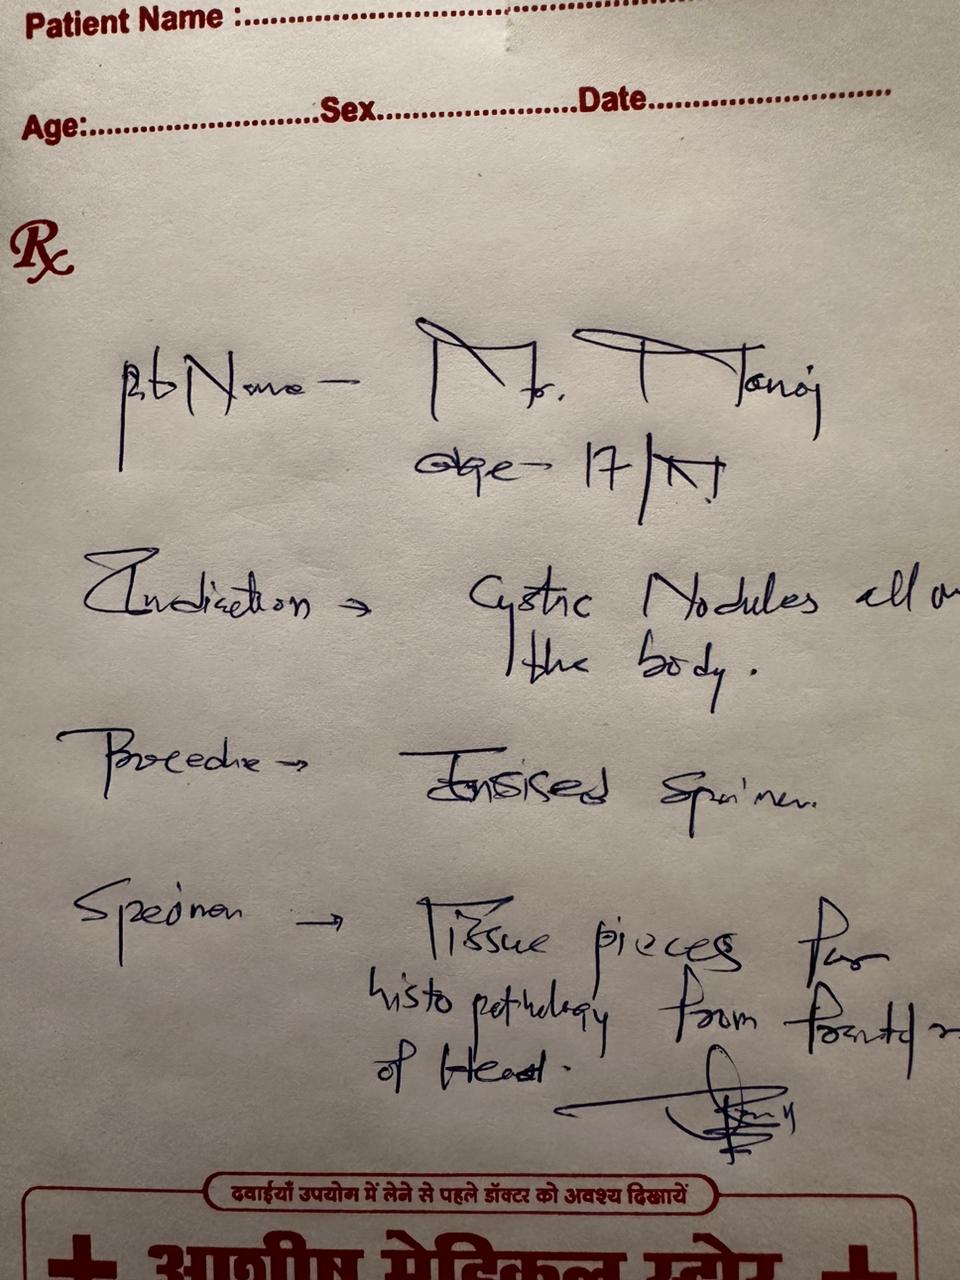 Patient Name :
Age: Sex Date
Rx
pt Name - Mr. Manoj
age - 17/M
Indication → Cystic Nodules all
the body.
Procedure → Insised Specimen.
Specimen → Tissue pieces for
histopathology from
of Head.
दवाईयाँ उपयोग में लेने से पहले डॉक्टर को अवश्य दिखायें
आशीष मेडिकल स्टोर